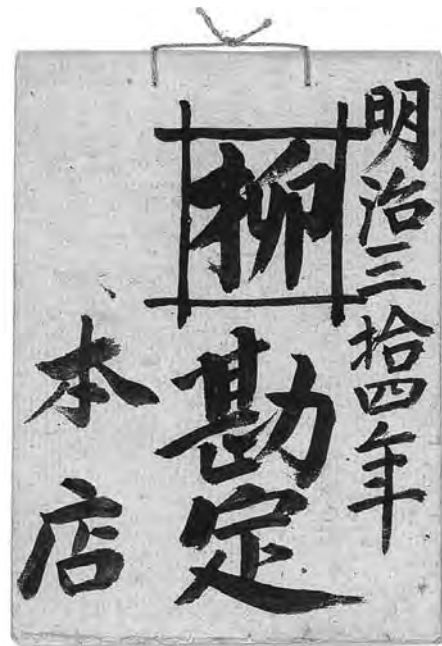 明治三拾四年
柳勘定
本店